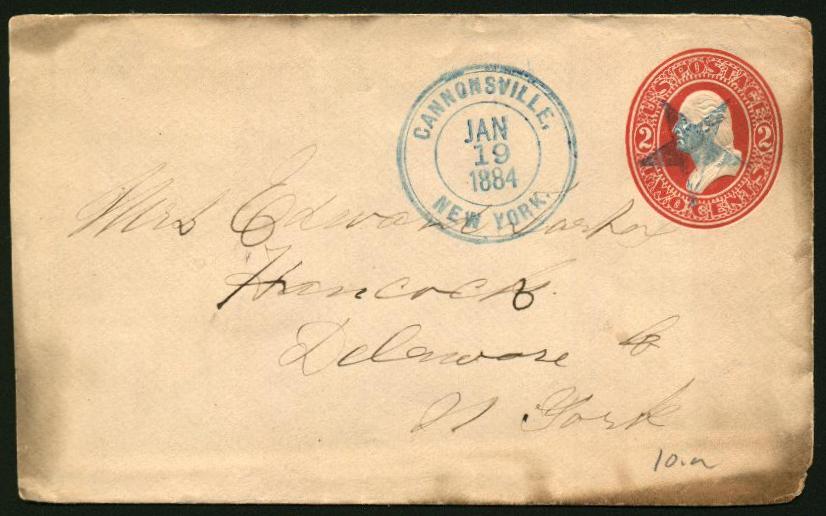 CANNONSVILLE,
JAN
19
1884
NEW YORK.
U.S. POSTAGE
2 2
TWO CENTS
Mrs Edward
Hancock
Delaware Co
N York